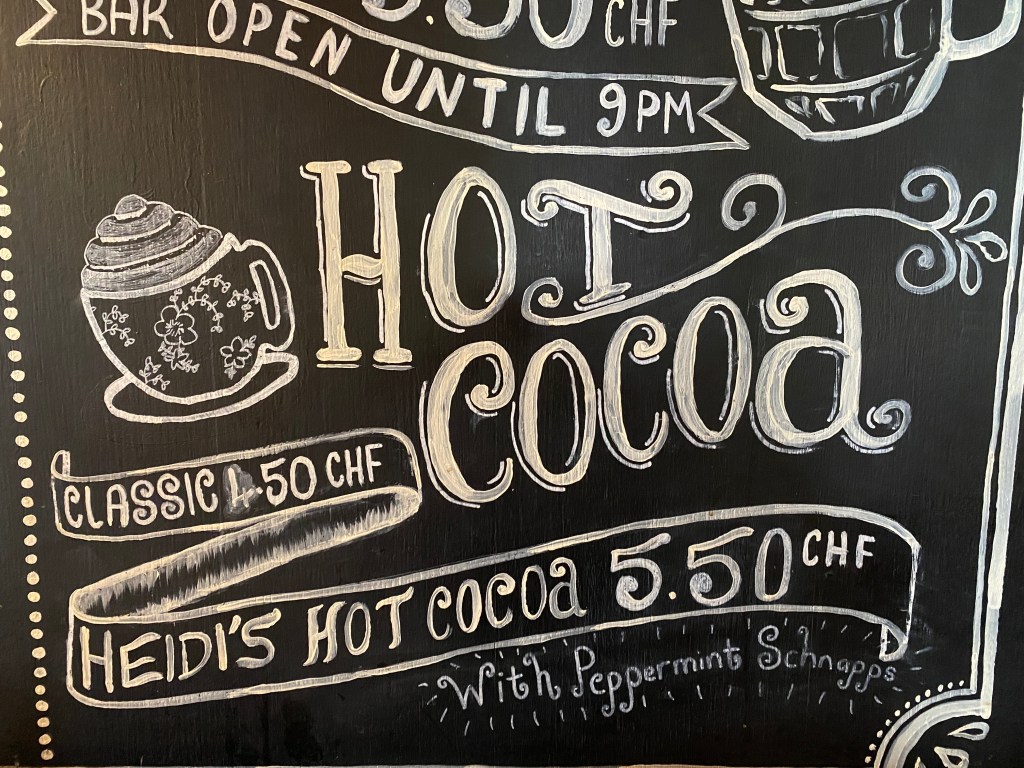 5.50 CHF
BAR OPEN UNTIL 9PM
HOT
COCOA
CLASSIC 4.50 CHF
HEIDI'S HOT COCOA 5.50 CHF
With Peppermint Schnapps